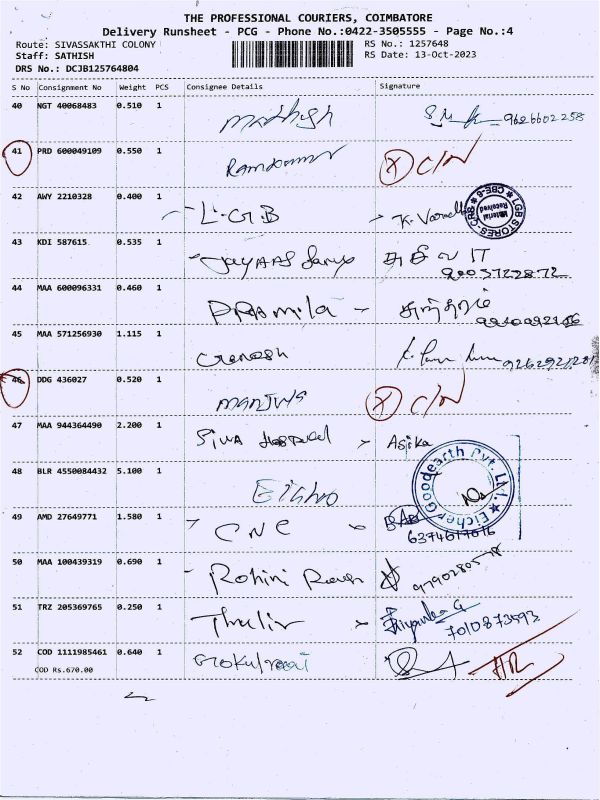 THE PROFESSIONAL COURIERS, COIMBATORE
Delivery Runsheet - PCG - Phone No.:0422-3505555 - Page No.:4
Route: SIVASSAKTHI COLONY
RS No.: 1257648
Staff: SATHISH
RS Date: 13-Oct-2023
DRS No.: DCJB125764804
S No Consignment No Weight PCS Consignee Details Signature
40 NGT 40068483 0.510 1 9626602258
41 PRD 600049109 0.550 1 Ramkumar C/N
42 AWY 2210328 0.400 1 L.G.B K.
LGB STORES-CRB CBE-6
Material Received
43 KDI 587615 0.535 1
44 MAA 600096331 0.460 1 PRAmila -
45 MAA 571256930 1.115 1 Ganesh
46 DDG 436027 0.520 1 MANJULA C/N
47 MAA 944364490 2.200 1 SIVA Hospital Asika
48 BLR 4550084432 5.100 1
Eicher Goodearth Pvt. Ltd.
49 AMD 27649771 1.580 1 CNC
50 MAA 100439319 0.690 1 Rohini
51 TRZ 205369765 0.250 1 Thulir Priyanka G
7010873593
52 COD 1111985461 0.640 1 Gokulraj
COD Rs.670.00